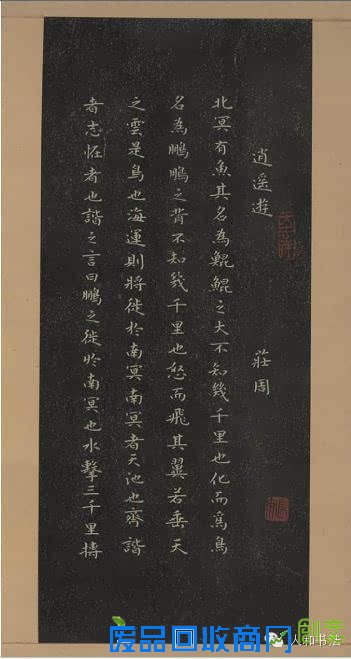 逍遥遊
莊周
北冥有魚其名為鯤鯤之大不知幾千里也化而為鳥
名為鵬鵬之背不知幾千里也怒而飛其翼若垂天
之雲是鳥也海運則將徙於南冥南冥者天池也齊諧
者志恠者也諧之言曰鵬之徙於南冥也水擊三千里摶
废品回收商网
人和书法
創業